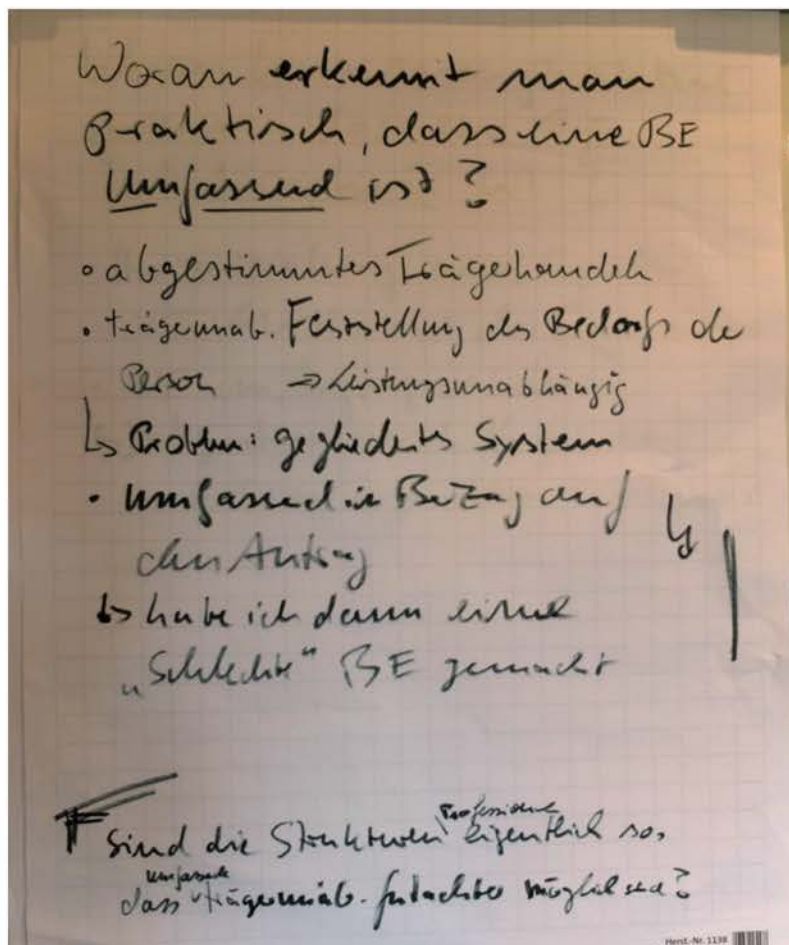 Woran erkennt man
praktisch, dass eine BE
Umfassend ist?
• abgestimmtes Trägerhandeln
• trägerunab. Feststellung des Bedarfs der
Person → Leistungsunabhängig
↳ Problem: gegliedertes System
• umfassend in Bezug auf
den Antrag
↳ habe ich dann eine
„Schlechte“ BE gemacht
Sind die Strukturen Professionen eigentlich so,
dass umfassende trägerunab. Gutachten möglich sind?
Herst.-Nr. 1138